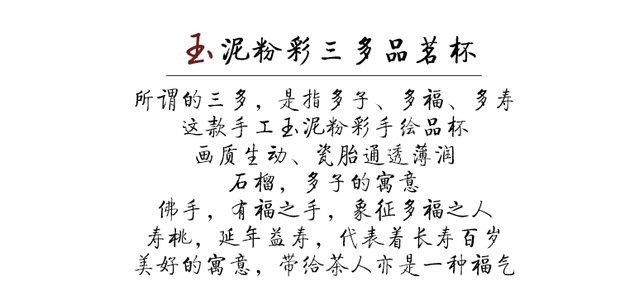 玉泥粉彩三多品茗杯
所谓的三多，是指多子、多福、多寿
这款手工玉泥粉彩手绘品杯
画质生动、瓷胎通透薄润
石榴，多子的寓意
佛手，有福之手，象征多福之人
寿桃，延年益寿，代表着长寿百岁
美好的寓意，带给茶人亦是一种福气